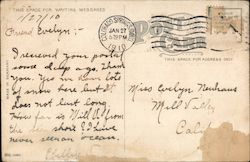 THIS SPACE FOR WRITING MESSAGES
1/27/10
Friend Evelyn:—
I received your postal
some days ago. Thank
you. Yes we have lots
of snow here but it
does not last long.
How far is Mill V. from
the sea shore? I have
never seen an ocean.
COLORADO SPRINGS, COLO.
JAN 27
1910
Post Card
THIS SPACE FOR ADDRESS ONLY
Miss Evelyn Neuhaus
Mill Valley
Calif
MADE IN GERMANY